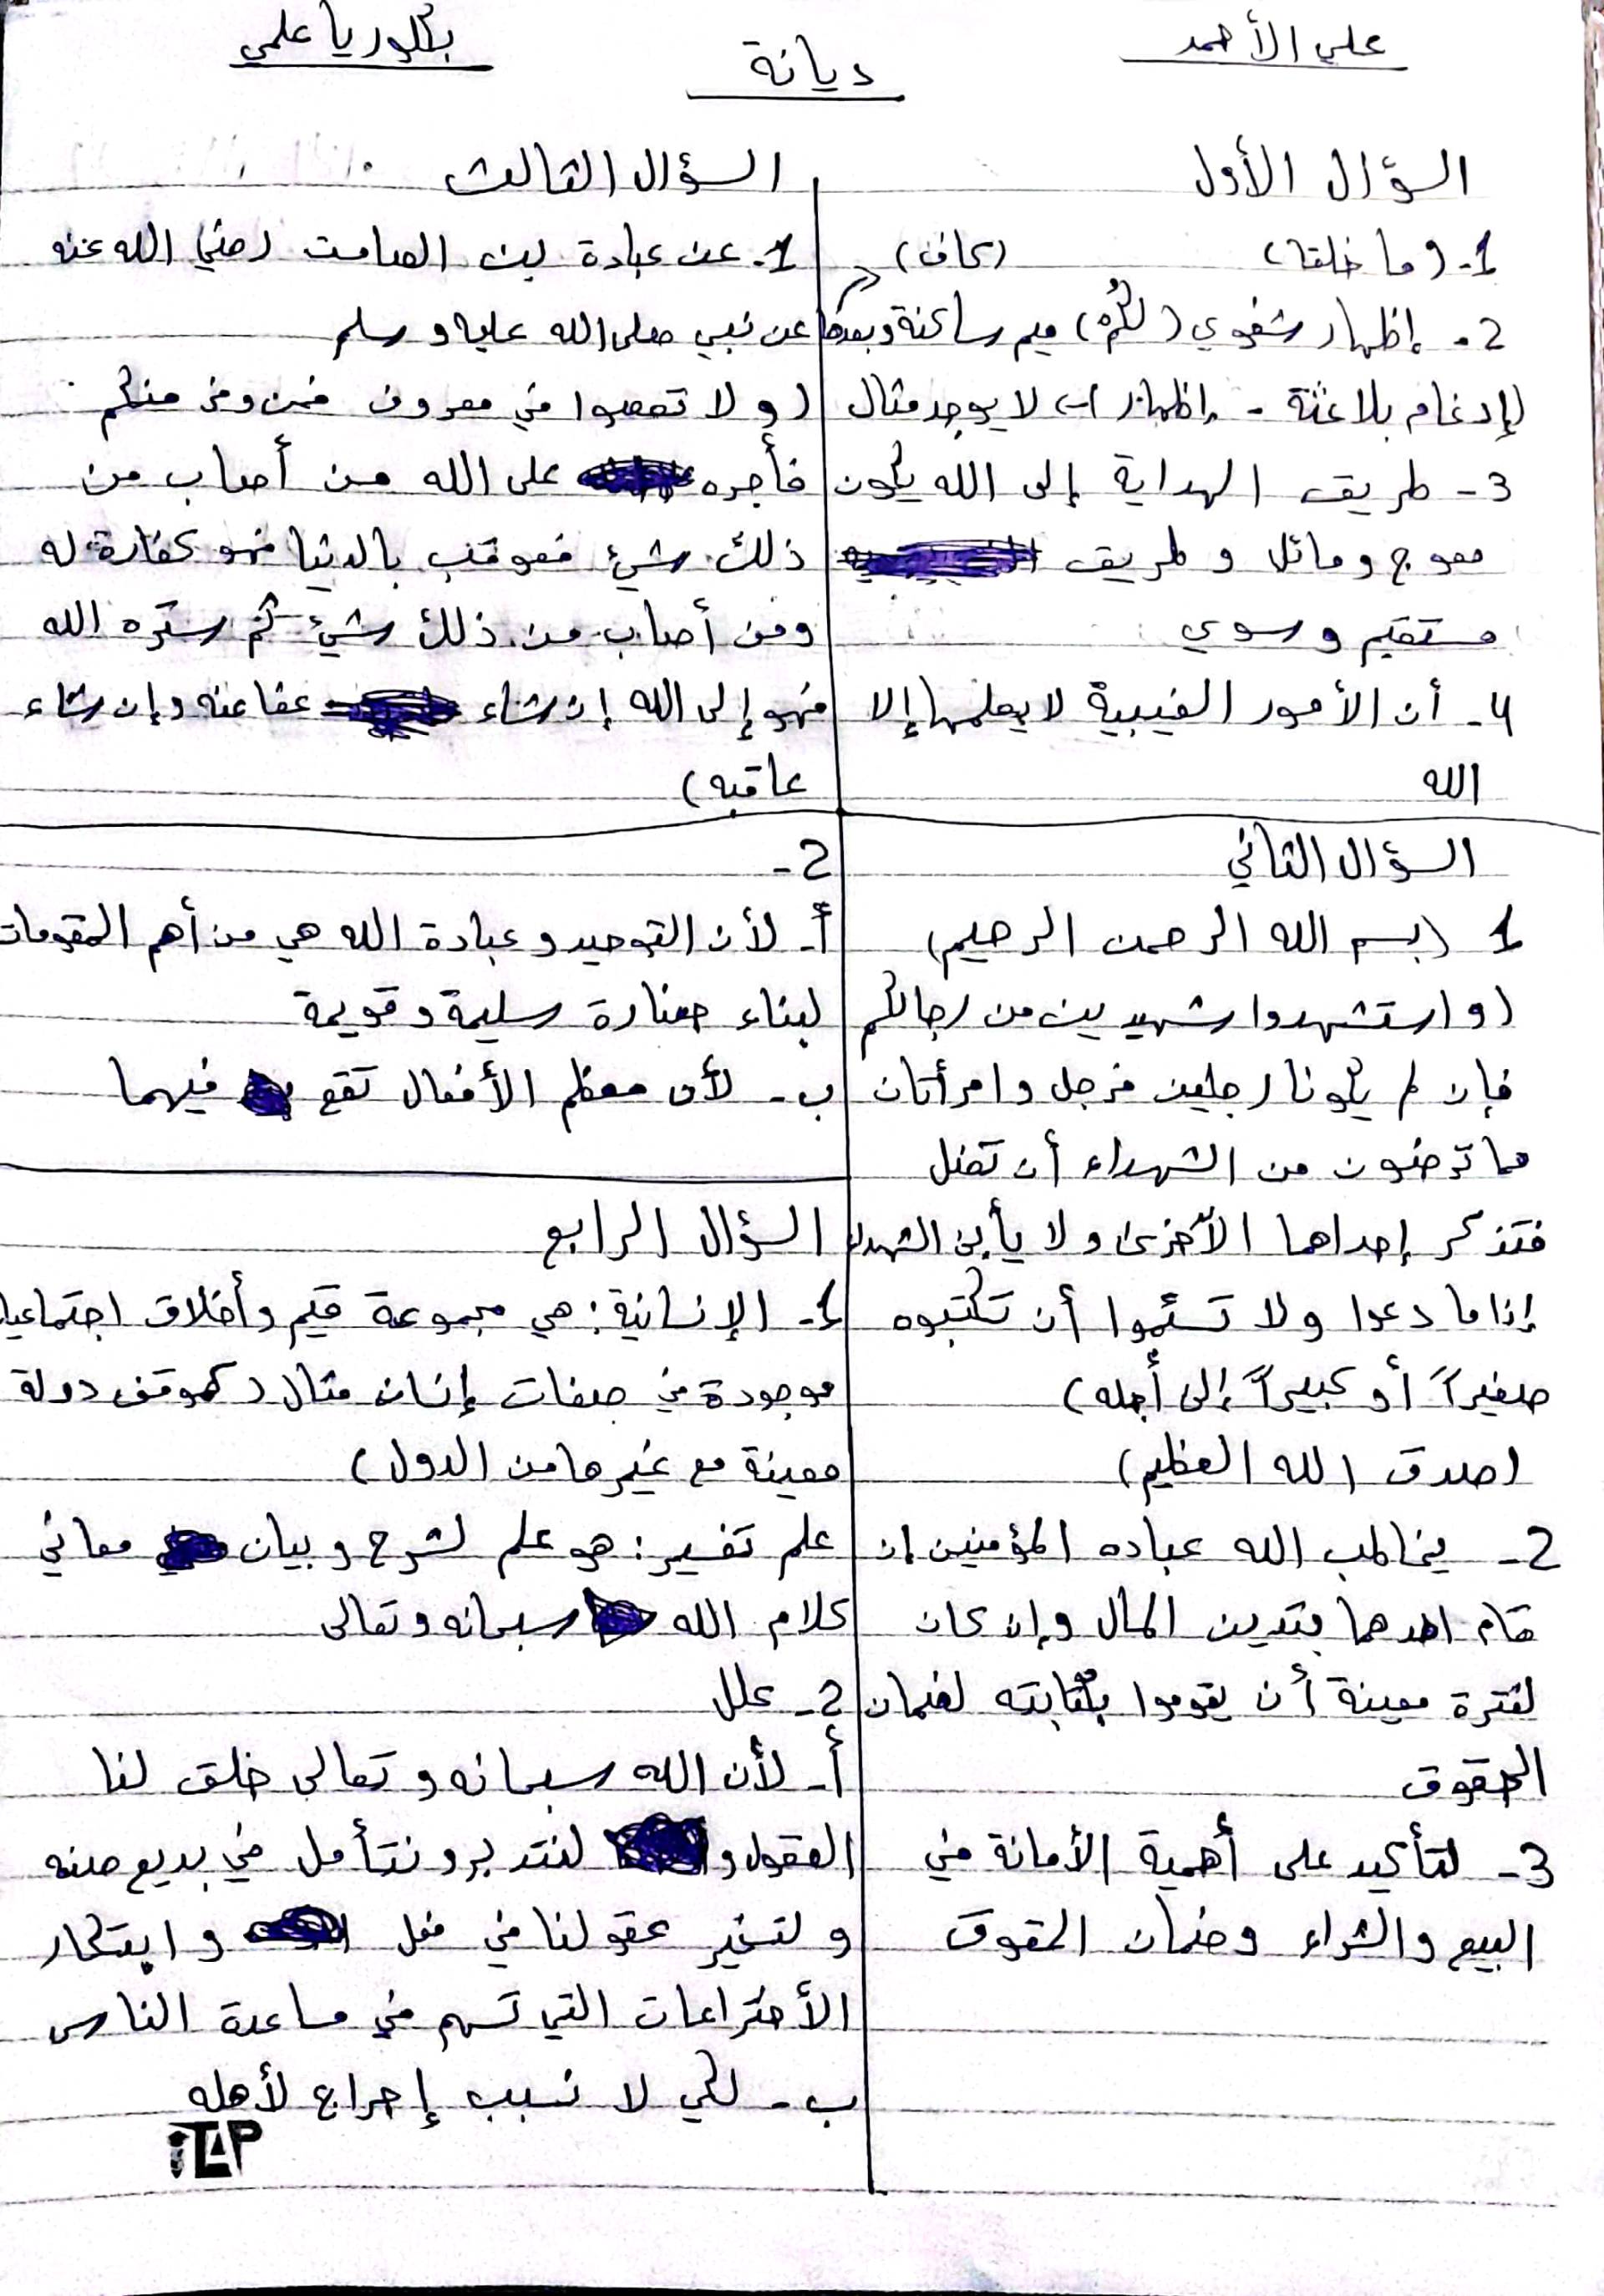 علي الأحمد
ديانة
بكلوريا علمي
السؤال الأول
1- (ما خلقا) (كاف)
2- إظهار شفوي (لكمْ) ميم ساكنة وبعدها
إدغام بلا غنة - إظهار لا يوجد مثال
3- طريق الهداية إلى الله يكون
معوج ومائل وطريق
مستقيم وسوي
4- أن الأمور الغيبية لا يعلمها إلا
الله
السؤال الثاني
1 (بسم الله الرحمن الرحيم)
(واستشهدوا شهيدين من رجالكم
فإن لم يكونا رجلين فرجل وامرأتان
مما ترضون من الشهداء أن تضل
فتذكر إحداهما الأخرى ولا يأبى الشهداء
إذا ما دعوا ولا تسئموا أن تكتبوه
صغيراً أو كبيراً إلى أجله)
(صدق الله العظيم)
2- يخاطب الله عباده المؤمنين إن
قام احدهما بتدين المال وإن كان
لفترة معينة أن يقوموا بكتابته لضمان
الحقوق
3- لتأكيد على أهمية الأمانة في
البيع والشراء وضمان الحقوق
السؤال الثالث
1- عن عبادة بن الصامت رضي الله عنه
عن نبي صلى الله عليه وسلم
(ولا تعصوا في معروف فمن وفى منكم
فأجره على الله من أصاب من
ذلك شيء فعوقب بالدنيا فهو كفارة له
ومن أصاب من ذلك شيء ثم ستره الله
فهو إلى الله إن شاء عفا عنه وإن شاء
عاقبه)
2-
أ- لأن التوحيد وعبادة الله هي من أهم المقومات
لبناء حضارة سليمة وقويمة
ب- لأن معظم الأفعال تقع فيهما
السؤال الرابع
1- الإنسانية: هي مجموعة قيم وأخلاق اجتماعية
موجودة في صفات إنسان مثال (كموقف دولة
معينة مع غيرها من الدول)
علم تفسير: هو علم لشرح وبيان معاني
كلام الله سبحانه وتعالى
2- علل
أ- لأن الله سبحانه وتعالى خلق لنا
العقول و لنتدبر ونتأمل في بديع صنه
ولتسخير عقولنا في فعل وابتكار
الأختراعات التي تسهم في مساعدة الناس
ب- لكي لا نسبب إحراج لأهله
iTAP